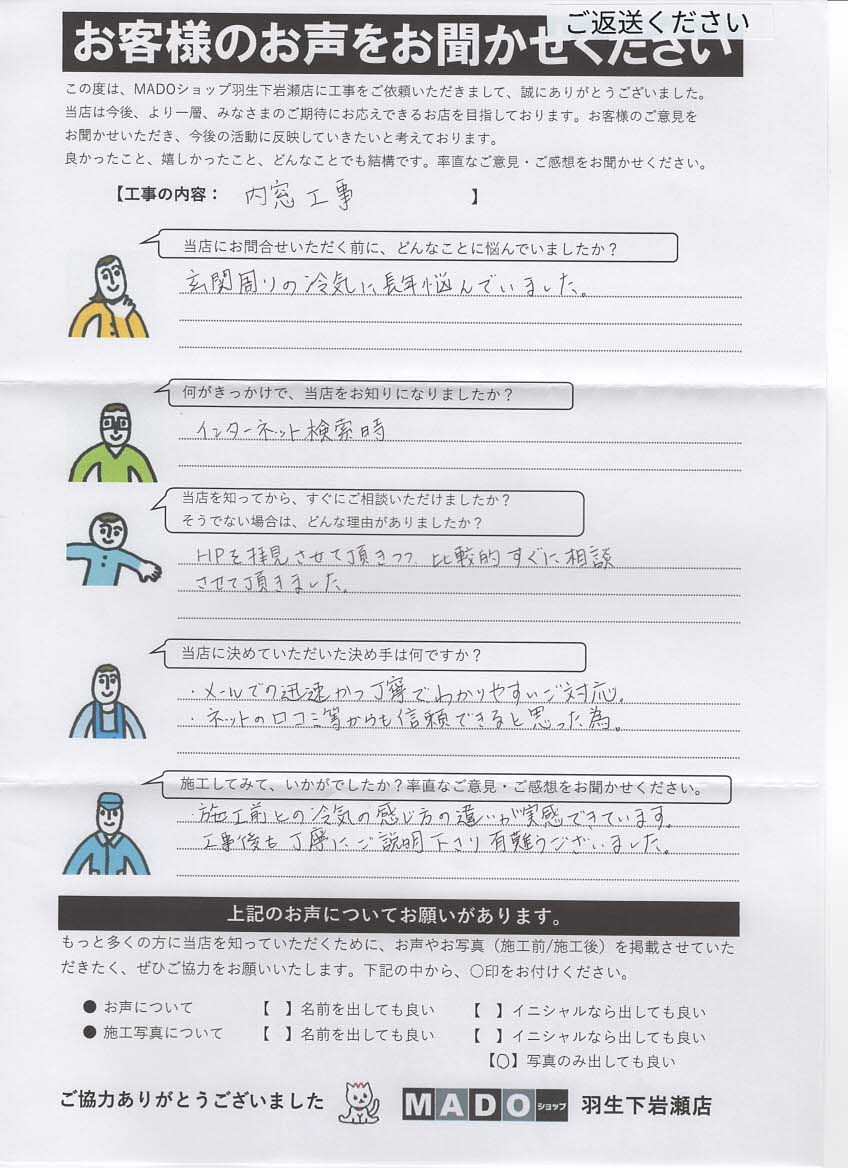 ご返送ください
お客様のお声をお聞かせください
この度は、MADOショップ羽生下岩瀬店に工事をご依頼いただきまして、誠にありがとうございました。
当店は今後、より一層、みなさまのご期待にお応えできるお店を目指しております。お客様のご意見を
お聞かせいただき、今後の活動に反映していきたいと考えております。
良かったこと、嬉しかったこと、どんなことでも結構です。率直なご意見・ご感想をお聞かせください。
【工事の内容： 内窓工事 】
当店にお問合せいただく前に、どんなことに悩んでいましたか？
玄関周りの冷気に長年悩んでいました。
何がきっかけで、当店をお知りになりましたか？
インターネット検索時
当店を知ってから、すぐにご相談いただけましたか？
そうでない場合は、どんな理由がありましたか？
HPを拝見させて頂きつつ、比較的すぐに相談
させて頂きました。
当店に決めていただいた決め手は何ですか？
・メールでの迅速かつ丁寧でわかりやすいご対応。
・ネットの口コミ等からも信頼できると思った為。
施工してみて、いかがでしたか？率直なご意見・ご感想をお聞かせください。
・施工前との冷気の感じ方の違いが実感できています。
工事後も丁寧にご説明下さり有難うございました。
上記のお声についてお願いがあります。
もっと多くの方に当店を知っていただくために、お声やお写真（施工前/施工後）を掲載させていた
だきたく、ぜひご協力をお願いいたします。下記の中から、〇印をお付けください。
● お声について 【 】名前を出しても良い 【 】イニシャルなら出しても良い
● 施工写真について 【 】名前を出しても良い 【 】イニシャルなら出しても良い
【〇】写真のみ出しても良い
ご協力ありがとうございました MADOショップ 羽生下岩瀬店